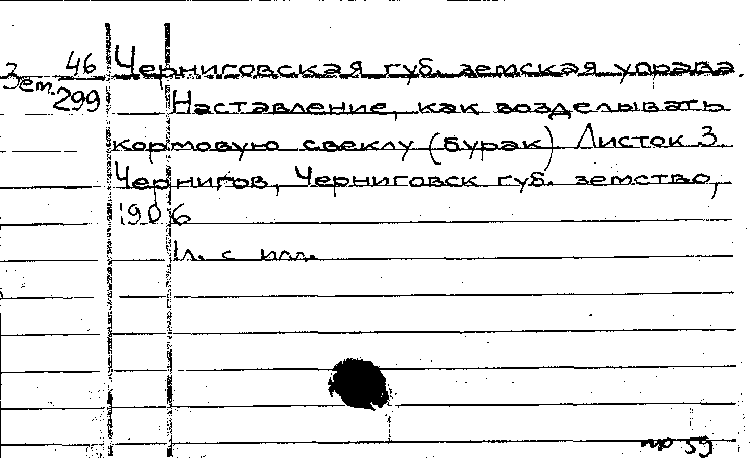 46 Черниговская губ. земская управа.
Зем. 299 Наставление, как возделывать
кормовую свеклу (бурак) Листок 3.
Чернигов, Черниговск губ. земство,
1906
1л. с илл.
пр 59